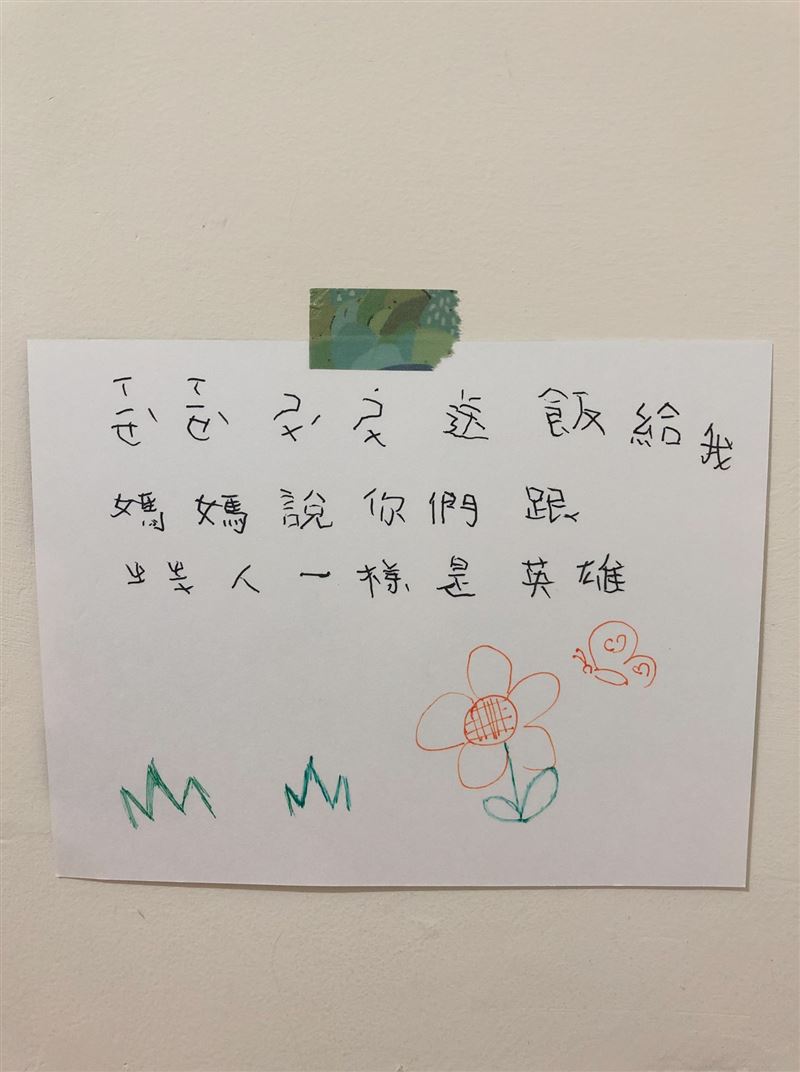 ㄒㄧㄝˋ ㄒㄧㄝˋ 送 飯 給 我
媽 媽 說 你 們 跟
人 一 樣 是 英 雄